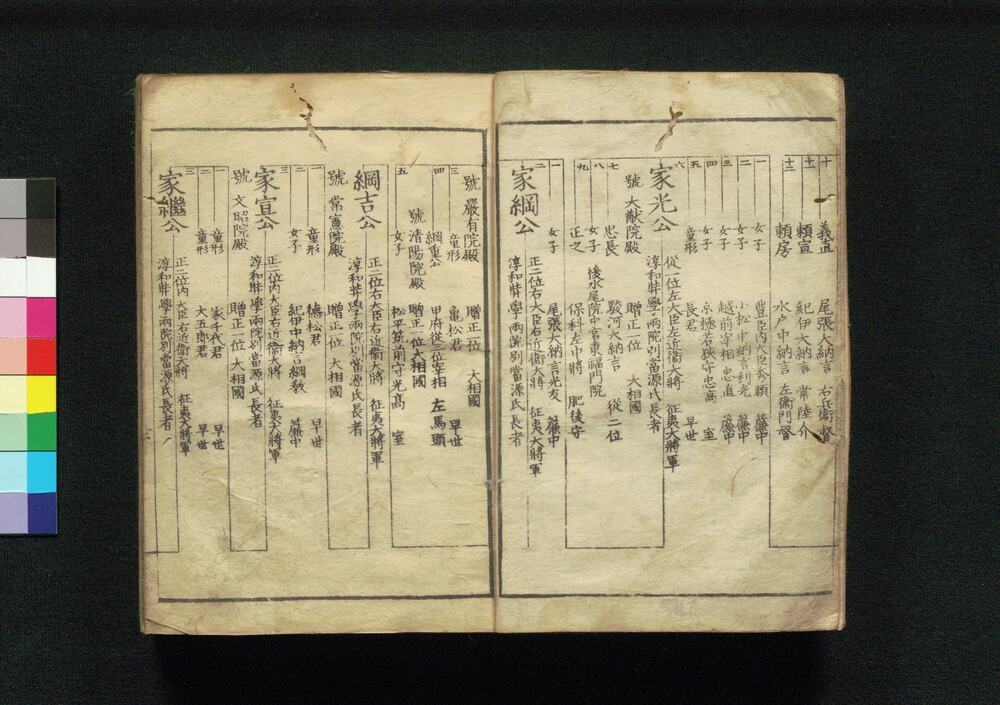 十 義直 尾張大納言 右兵衛督
十一 頼宣 紀伊大納言 常陸介
十二 頼房 水戸中納言 左衛門督
一 女子 豊臣内大臣秀頼 簾中
二 女子 小松中納言利光 簾中
三 女子 越前宰相忠直 簾中
四 女子 京極若狭守忠高 室
五 童形 長君 早世
六 家光公 従一位左大臣左近衛大将 征夷大将軍
淳和弉學両院別當源氏長者
號 大猷院殿 贈正一位 大相國
七 忠長 駿河大納言 従二位
八 女子 後水尾院中宮東福門院
九 正之 保科左中将 肥後守
一 女子 尾張大納言光友 簾中
二 家綱公 正二位右大臣右近衛大将 征夷大将軍
淳和弉學両院別當源氏長者
號 嚴有院殿 贈正一位 大相國
三 童形 亀松君 早世
四 綱重公 甲府従三位宰相 左馬頭
號 清陽院殿 贈正一位大相國
五 女子 松平筑前守光高 室
綱吉公 正二位右大臣右近衛大将 征夷大将軍
淳和弉學両院別當源氏長者
號 常憲院殿 贈正一位 大相國
一 童形 徳松君 早世
二 女子 紀伊中納言綱教 簾中
三 家宣公 正二位内大臣右近衛大将 征夷大将軍
淳和弉學両院別當源氏長者
號 文昭院殿 贈正一位 大相國
一 童形 家千代君 早世
二 童形 大五郎君 早世
三 家繼公 正二位内大臣右近衛大将 征夷大将軍
淳和弉學両院別當源氏長者